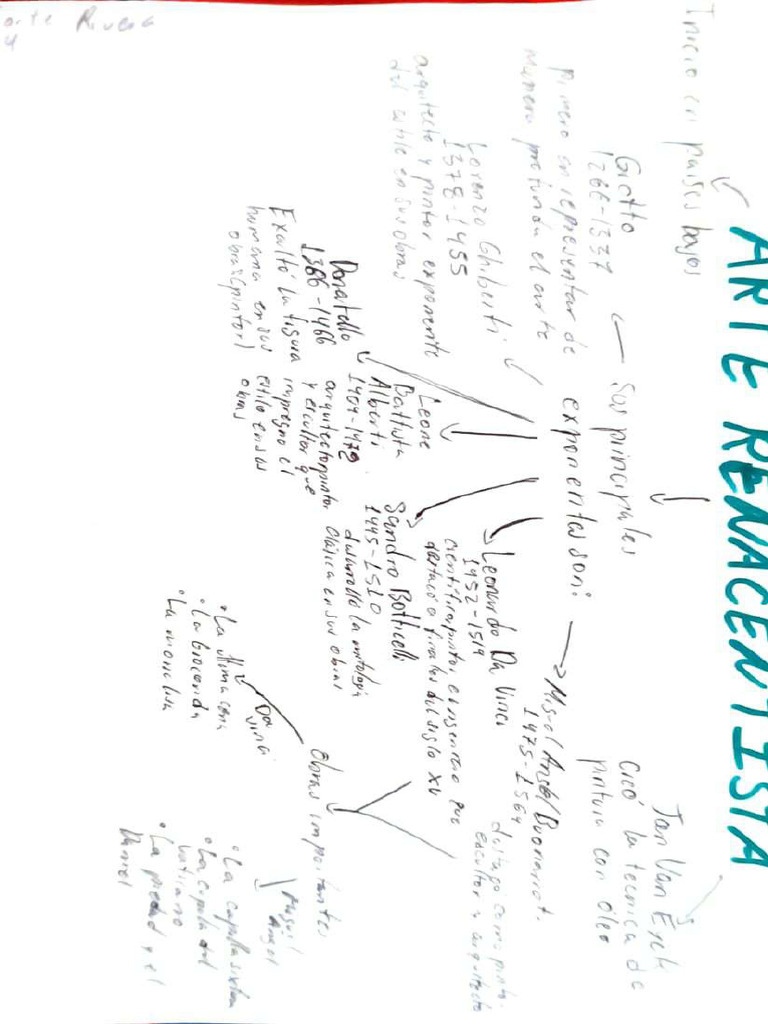 ARTE RENACENTISTA
Inicio en países bajos
Sus principales
exponentes son:
Jan Van Eyck
Creó la tecnica de
pintura con óleo
Giotto
1266-1337
primero en representar de
manera profunda el arte
Lorenzo Ghiberti
1378-1455
arquitecto y pintor exponente
del estilo en sus obras
Donatello
1366-1466
Exaltó la figura
humana en sus
obras (pintor)
Leone
Battista
Alberti
1404-1472
arquitecto, pintor
y escultor que
impregno el
estilo en sus
obras
Sandro Botticelli
1445-1510
desarrollo la mitologia
clásica en sus obras
Leonardo Da Vinci
1452-1519
cientifico, pintor e ingeniero que
destacó a finales del siglo XV
Miguel Angel Buonarrot.
1475-1564
destaco como pintor,
escultor y arquitecto
Obras importantes
Da
Vinci
• La última cena
• La Gioconda
• La monalisa
Miguel
Angel
• La capilla sixtina
• La cupula del
vaticano
• La piedad y el
Daniel
Rivera